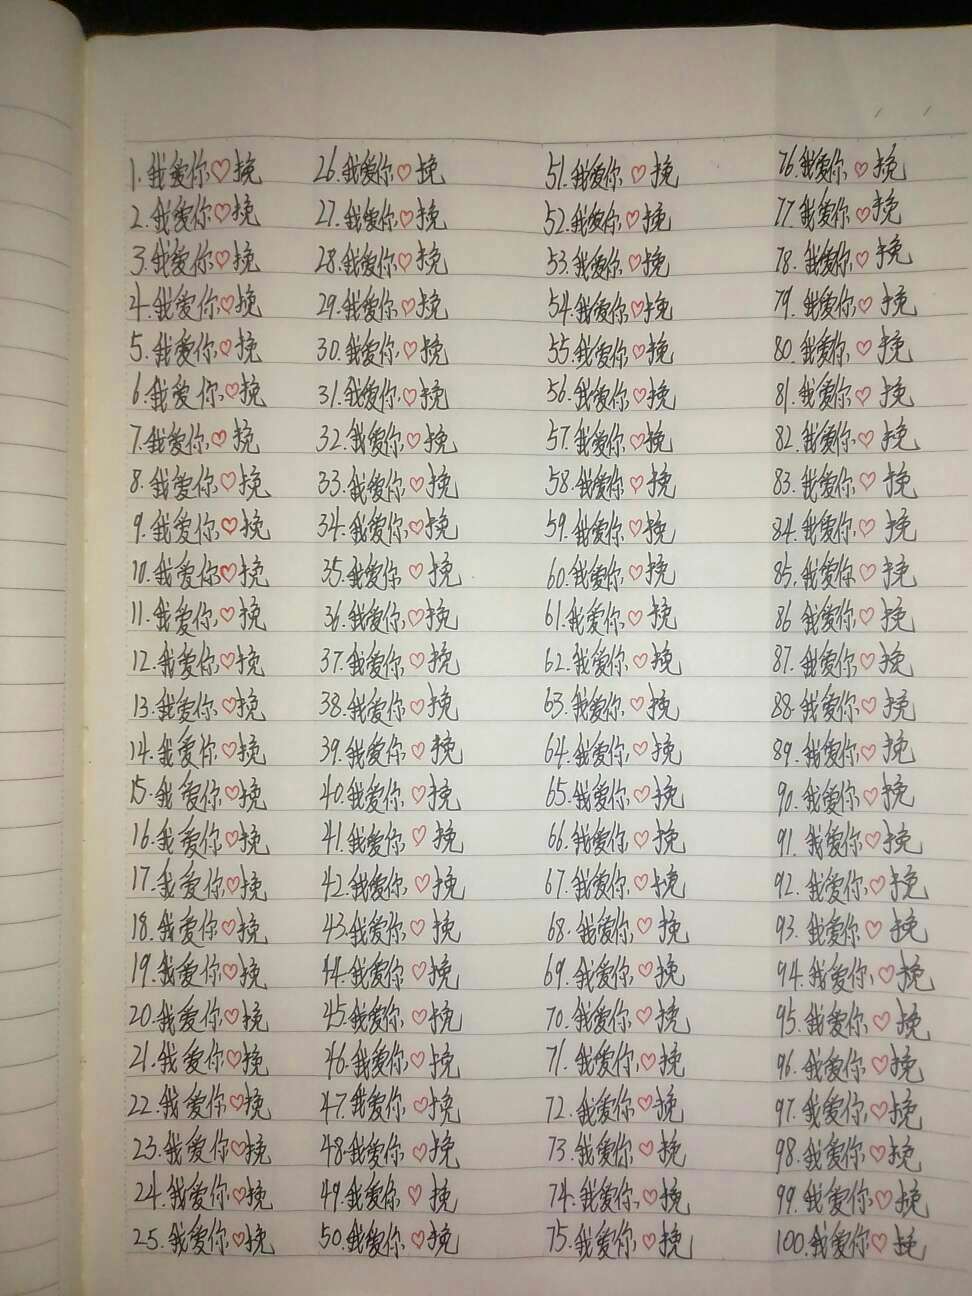 1.我爱你♡挽
2.我爱你♡挽
3.我爱你♡挽
4.我爱你♡挽
5.我爱你♡挽
6.我爱你♡挽
7.我爱你♡挽
8.我爱你♡挽
9.我爱你♡挽
10.我爱你♡挽
11.我爱你♡挽
12.我爱你♡挽
13.我爱你♡挽
14.我爱你♡挽
15.我爱你♡挽
16.我爱你♡挽
17.我爱你♡挽
18.我爱你♡挽
19.我爱你♡挽
20.我爱你♡挽
21.我爱你♡挽
22.我爱你♡挽
23.我爱你♡挽
24.我爱你♡挽
25.我爱你♡挽
26.我爱你♡挽
27.我爱你♡挽
28.我爱你♡挽
29.我爱你♡挽
30.我爱你♡挽
31.我爱你♡挽
32.我爱你♡挽
33.我爱你♡挽
34.我爱你♡挽
35.我爱你♡挽
36.我爱你♡挽
37.我爱你♡挽
38.我爱你♡挽
39.我爱你♡挽
40.我爱你♡挽
41.我爱你♡挽
42.我爱你♡挽
43.我爱你♡挽
44.我爱你♡挽
45.我爱你♡挽
46.我爱你♡挽
47.我爱你♡挽
48.我爱你♡挽
49.我爱你♡挽
50.我爱你♡挽
51.我爱你♡挽
52.我爱你♡挽
53.我爱你♡挽
54.我爱你♡挽
55.我爱你♡挽
56.我爱你♡挽
57.我爱你♡挽
58.我爱你♡挽
59.我爱你♡挽
60.我爱你♡挽
61.我爱你♡挽
62.我爱你♡挽
63.我爱你♡挽
64.我爱你♡挽
65.我爱你♡挽
66.我爱你♡挽
67.我爱你♡挽
68.我爱你♡挽
69.我爱你♡挽
70.我爱你♡挽
71.我爱你♡挽
72.我爱你♡挽
73.我爱你♡挽
74.我爱你♡挽
75.我爱你♡挽
76.我爱你♡挽
77.我爱你♡挽
78.我爱你♡挽
79.我爱你♡挽
80.我爱你♡挽
81.我爱你♡挽
82.我爱你♡挽
83.我爱你♡挽
84.我爱你♡挽
85.我爱你♡挽
86.我爱你♡挽
87.我爱你♡挽
88.我爱你♡挽
89.我爱你♡挽
90.我爱你♡挽
91.我爱你♡挽
92.我爱你♡挽
93.我爱你♡挽
94.我爱你♡挽
95.我爱你♡挽
96.我爱你♡挽
97.我爱你♡挽
98.我爱你♡挽
99.我爱你♡挽
100.我爱你♡挽